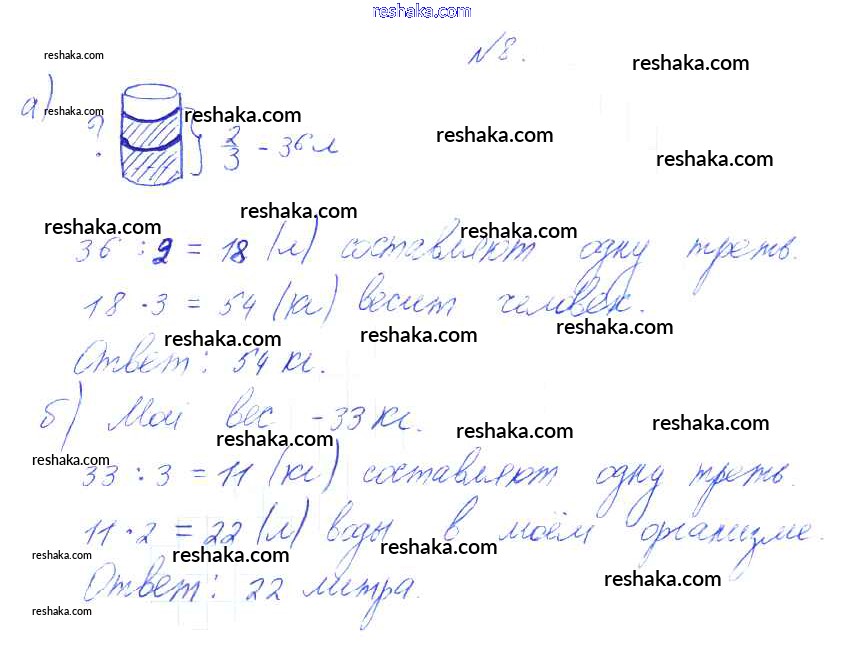 reshaka.com
№8.
reshaka.com
reshaka.com
а)
reshaka.com
reshaka.com
?
2/3 - 36 л
reshaka.com
reshaka.com
reshaka.com
reshaka.com
reshaka.com
36 : 2 = 18 (л) составляют одну треть.
18 · 3 = 54 (кг) весит человек.
reshaka.com
reshaka.com
reshaka.com
Ответ: 54 кг.
б) Мой вес - 33 кг.
reshaka.com
reshaka.com
reshaka.com
reshaka.com
33 : 3 = 11 (кг) составляют одну треть.
11 · 2 = 22 (л) воды в моём организме.
reshaka.com
reshaka.com
reshaka.com
reshaka.com
Ответ: 22 литра.
reshaka.com